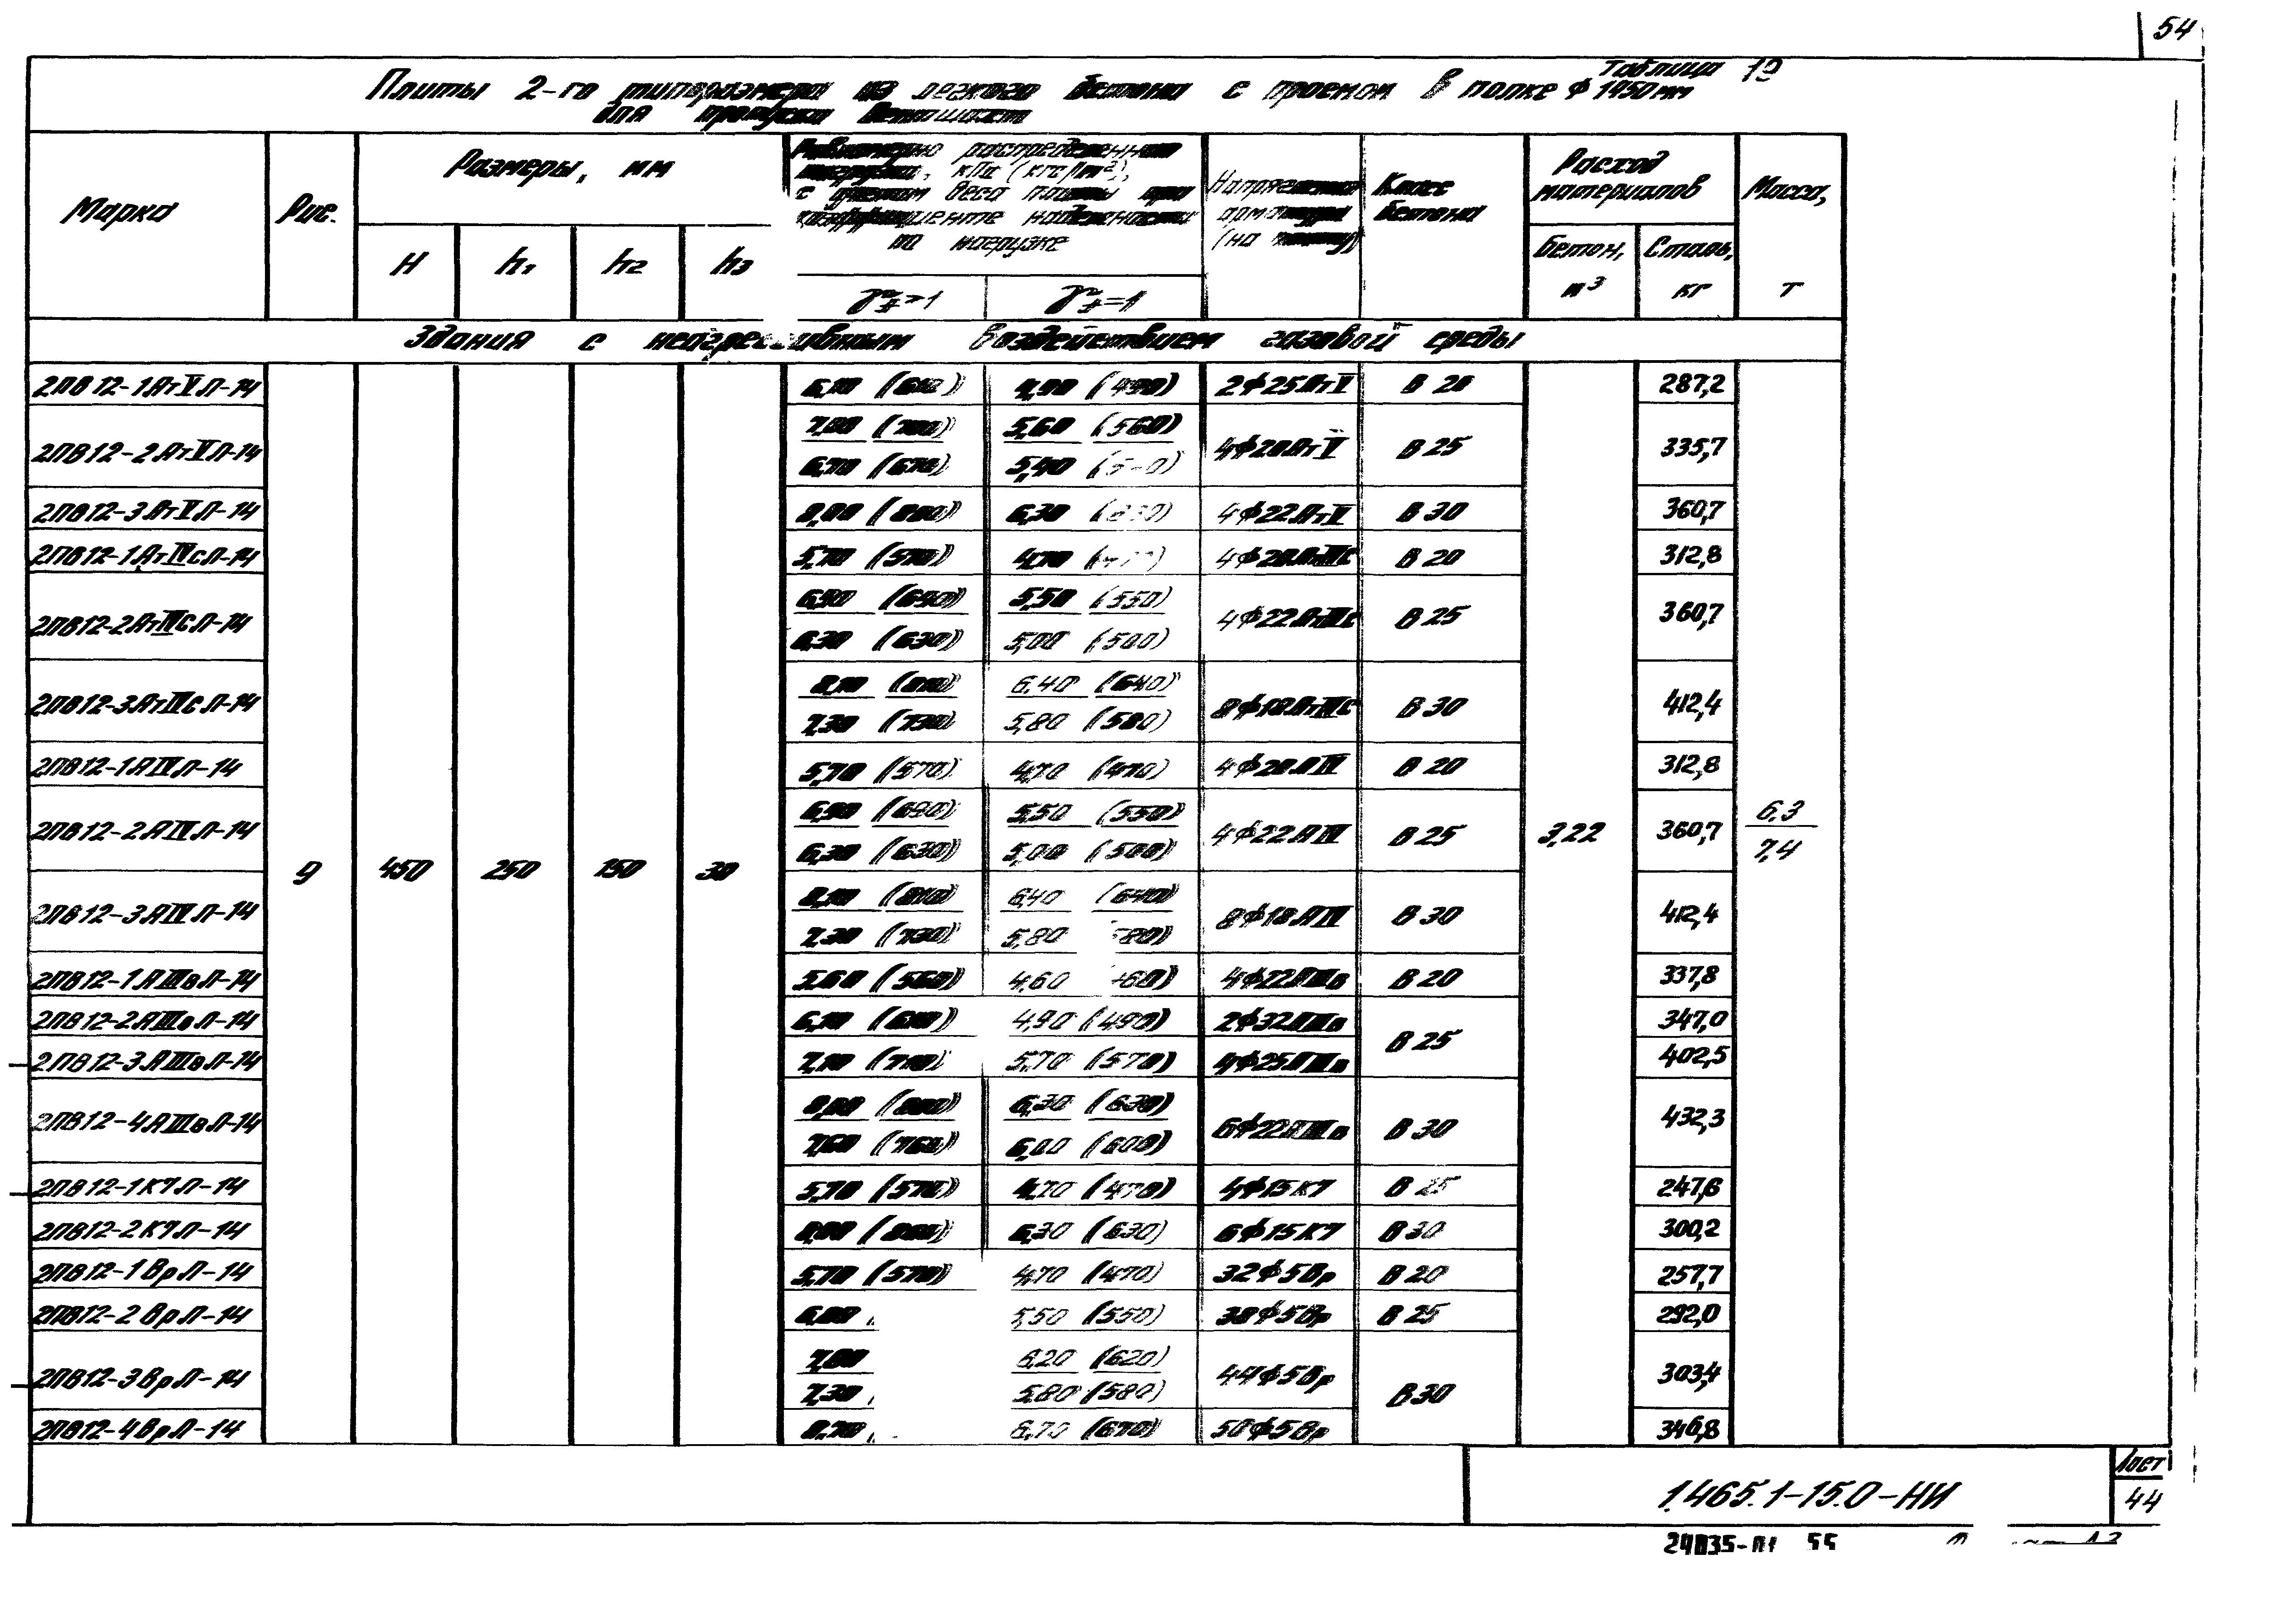 54
Таблица 19
Плиты 2-го типоразмера из легкого бетона с проемом в полке ф 1450 мм
для пропуска вентшахт
Марка Рис. Размеры, мм Равномерно распределенная нагрузка, кПа (кгс/м²), с учетом веса плиты при коэффициенте надежности по нагрузке Напрягаемая арматура (на плиту) Класс бетона Расход материалов Масса, т
H h1 h2 h3 γf>1 γf=1 Бетон, м³ Сталь, кг
Здания с неагрессивным воздействием газовой среды
2ПВ12-1АтVЛ-14 6,10 (610) 4,90 (490) 2ф25АтV В 20 287,2
2ПВ12-2АтVЛ-14 7,00 (700) 5,60 (560) 4ф20АтV В 25 335,7
6,70 (670) 5,40
2ПВ12-3АтVЛ-14 8,00 (800) 6,30 (630) 4ф22АтV В 30 360,7
2ПВ12-1АтIVСЛ-14 5,70 (570) 4,70 4ф20АтIVС В 20 312,8
2ПВ12-2АтIVСЛ-14 6,90 (690) 5,50 (550) 4ф22АтIVС В 25 360,7
6,30 (630) 5,00 (500)
2ПВ12-3АтIVСЛ-14 8,10 (810) 6,40 (640) 8ф18АтIVС В 30 412,4
7,30 (730) 5,80 (580)
2ПВ12-1АIVЛ-14 5,70 (570) 4,70 (470) 4ф20АIV В 20 312,8
2ПВ12-2АIVЛ-14 6,90 (690) 5,50 (550) 4ф22АIV В 25 360,7
6,30 (630) 5,00 (500)
9 450 250 150 30 3,22 6,3
7,4
2ПВ12-3АIVЛ-14 8,10 (810) 6,40 (640) 8ф18АIV В 30 412,4
7,30 (730) 5,80
2ПВ12-1АIIIвЛ-14 5,60 (560) 4,60 4ф22АIIIв В 20 337,8
2ПВ12-2АIIIвЛ-14 6,10 (610) 4,90 (490) 2ф32АIIIв В 25 347,0
2ПВ12-3АIIIвЛ-14 7,10 (710) 5,70 (570) 4ф25АIIIв 402,5
2ПВ12-4АIIIвЛ-14 8,00 (800) 6,30 (630) 6ф22АIIIв В 30 432,3
7,60 (760) 6,00 (600)
2ПВ12-1К7Л-14 5,70 (570) 4,70 (470) 4ф15К7 В 25 247,6
2ПВ12-2К7Л-14 8,00 (800) 6,30 (630) 6ф15К7 В 30 300,2
2ПВ12-1ВрЛ-14 5,70 (570) 4,70 (470) 32ф5Вр В 20 257,7
2ПВ12-2ВрЛ-14 5,50 (550) 38ф5Вр В 25 292,0
2ПВ12-3ВрЛ-14 6,20 (620) 44ф5Вр В 30 303,4
7,30 5,80 (580)
2ПВ12-4ВрЛ-14 8,70 6,70 (670) 50ф5Вр 346,8
1.465.1-15.0-НИ
Лист
44
24835-01 55